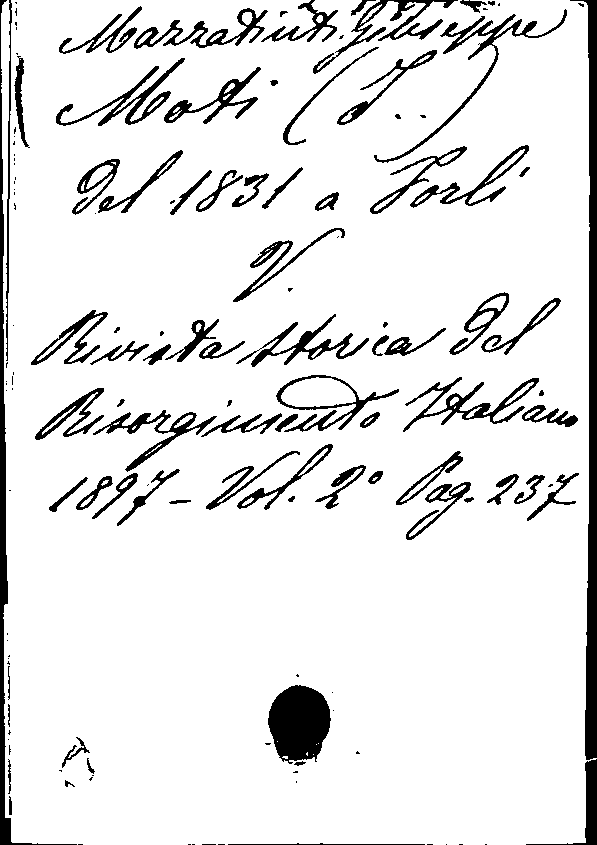 Mazzatinti Giuseppe
Moti (I..)
del 1831 a Forlì
V.
Rivista storica del
Risorgimento Italiano
1897 - Vol. 2° Pag. 237